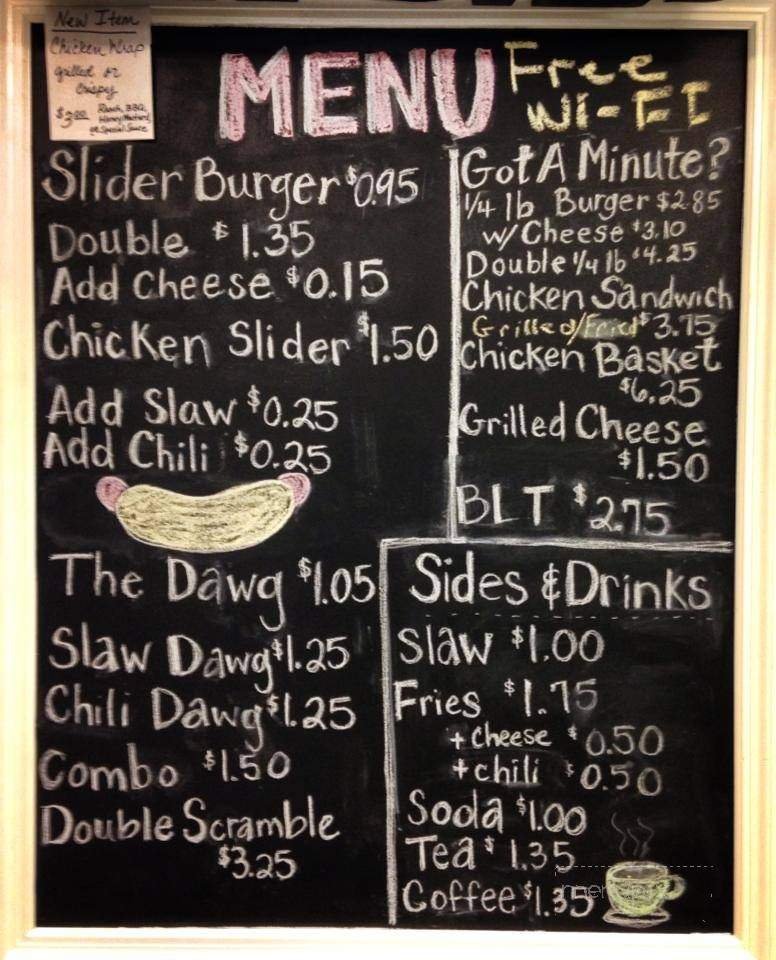 New Item
Chicken Wrap
grilled or
Crispy
$3.00 Ranch, BBQ,
Honey Mustard,
or Special Sauce
MENU
Free
WI-FI
Slider Burger $0.95
Double $1.35
Add Cheese $0.15
Chicken Slider $1.50
Add Slaw $0.25
Add Chili $0.25
The Dawg $1.05
Slaw Dawg $1.25
Chili Dawg $1.25
Combo $1.50
Double Scramble
$3.25
Got A Minute?
1/4 lb Burger $2.85
w/ Cheese $3.10
Double 1/4 lb $4.25
Chicken Sandwich
Grilled/Fried $3.75
Chicken Basket
$6.25
Grilled Cheese
$1.50
BLT $2.75
Sides & Drinks
Slaw $1.00
Fries $1.75
+ cheese $0.50
+ chili $0.50
Soda $1.00
Tea $1.35
Coffee $1.35